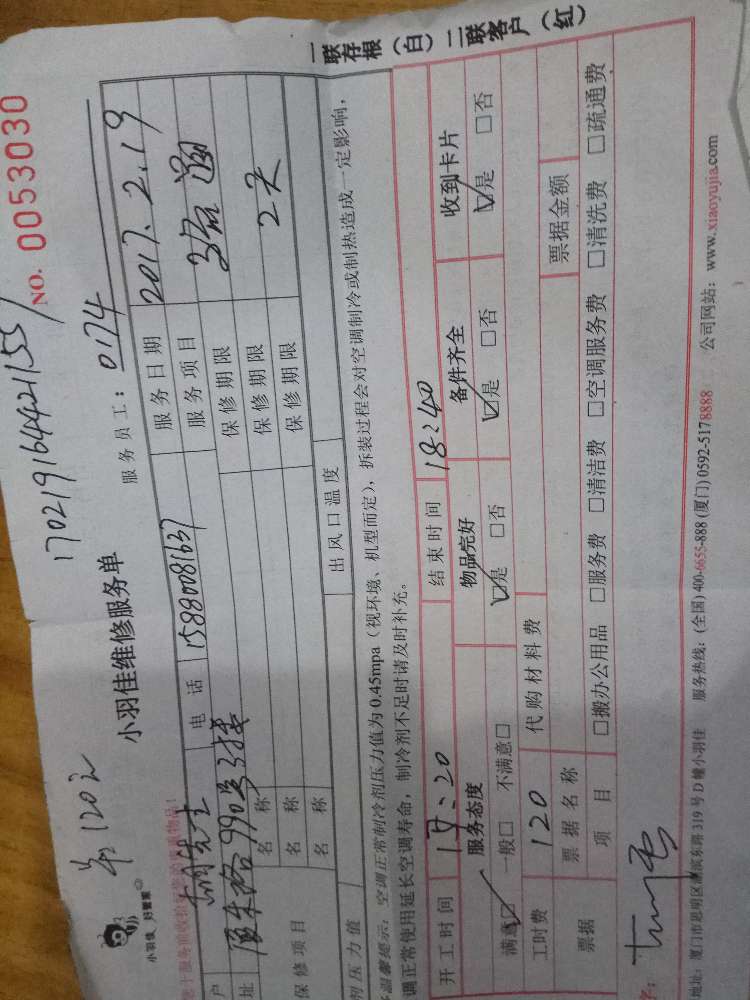 一联存根（白）二联客户（红）
NO. 0053030
17021916442155
小羽佳 好管家
小羽佳维修服务单
服务员工：0174
户 先生 电话 15880081637 服务日期 2017.2.19
址 990号3楼 服务项目
名称 保修期限
保修项目 名称 保修期限 2天
名称 保修期限
剂压力值 出风口温度
温馨提示：空调正常制冷剂压力值为0.45mpa（视环境、机型而定），拆装过程会对空调制冷或制热造成一定影响，
调正常使用延长空调寿命，制冷剂不足时请及时补充。
开工时间 结束时间 18:40
服务态度 物品完好 备件齐全 收到卡片
满意☑ 一般□ 不满意□ ☑是 □否 ☑是 □否 ☑是 □否
工时费 120 代购材料费
票据 票据名称 票据金额
项目 □搬办公用品 □服务费 □清洁费 □空调服务费 □清洗费 □疏通费
地址：厦门市思明区湖滨东路319号D幢小羽佳 服务热线：(全国)400-6655-888 (厦门)0592-5178888 公司网站：www.xiaoyujia.com